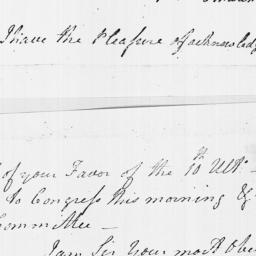 I have the Pleasure of acknowledg
of your Favor of the 10th Ult.
to Congress this morning &
Committee —
I am Sir Your most Obe